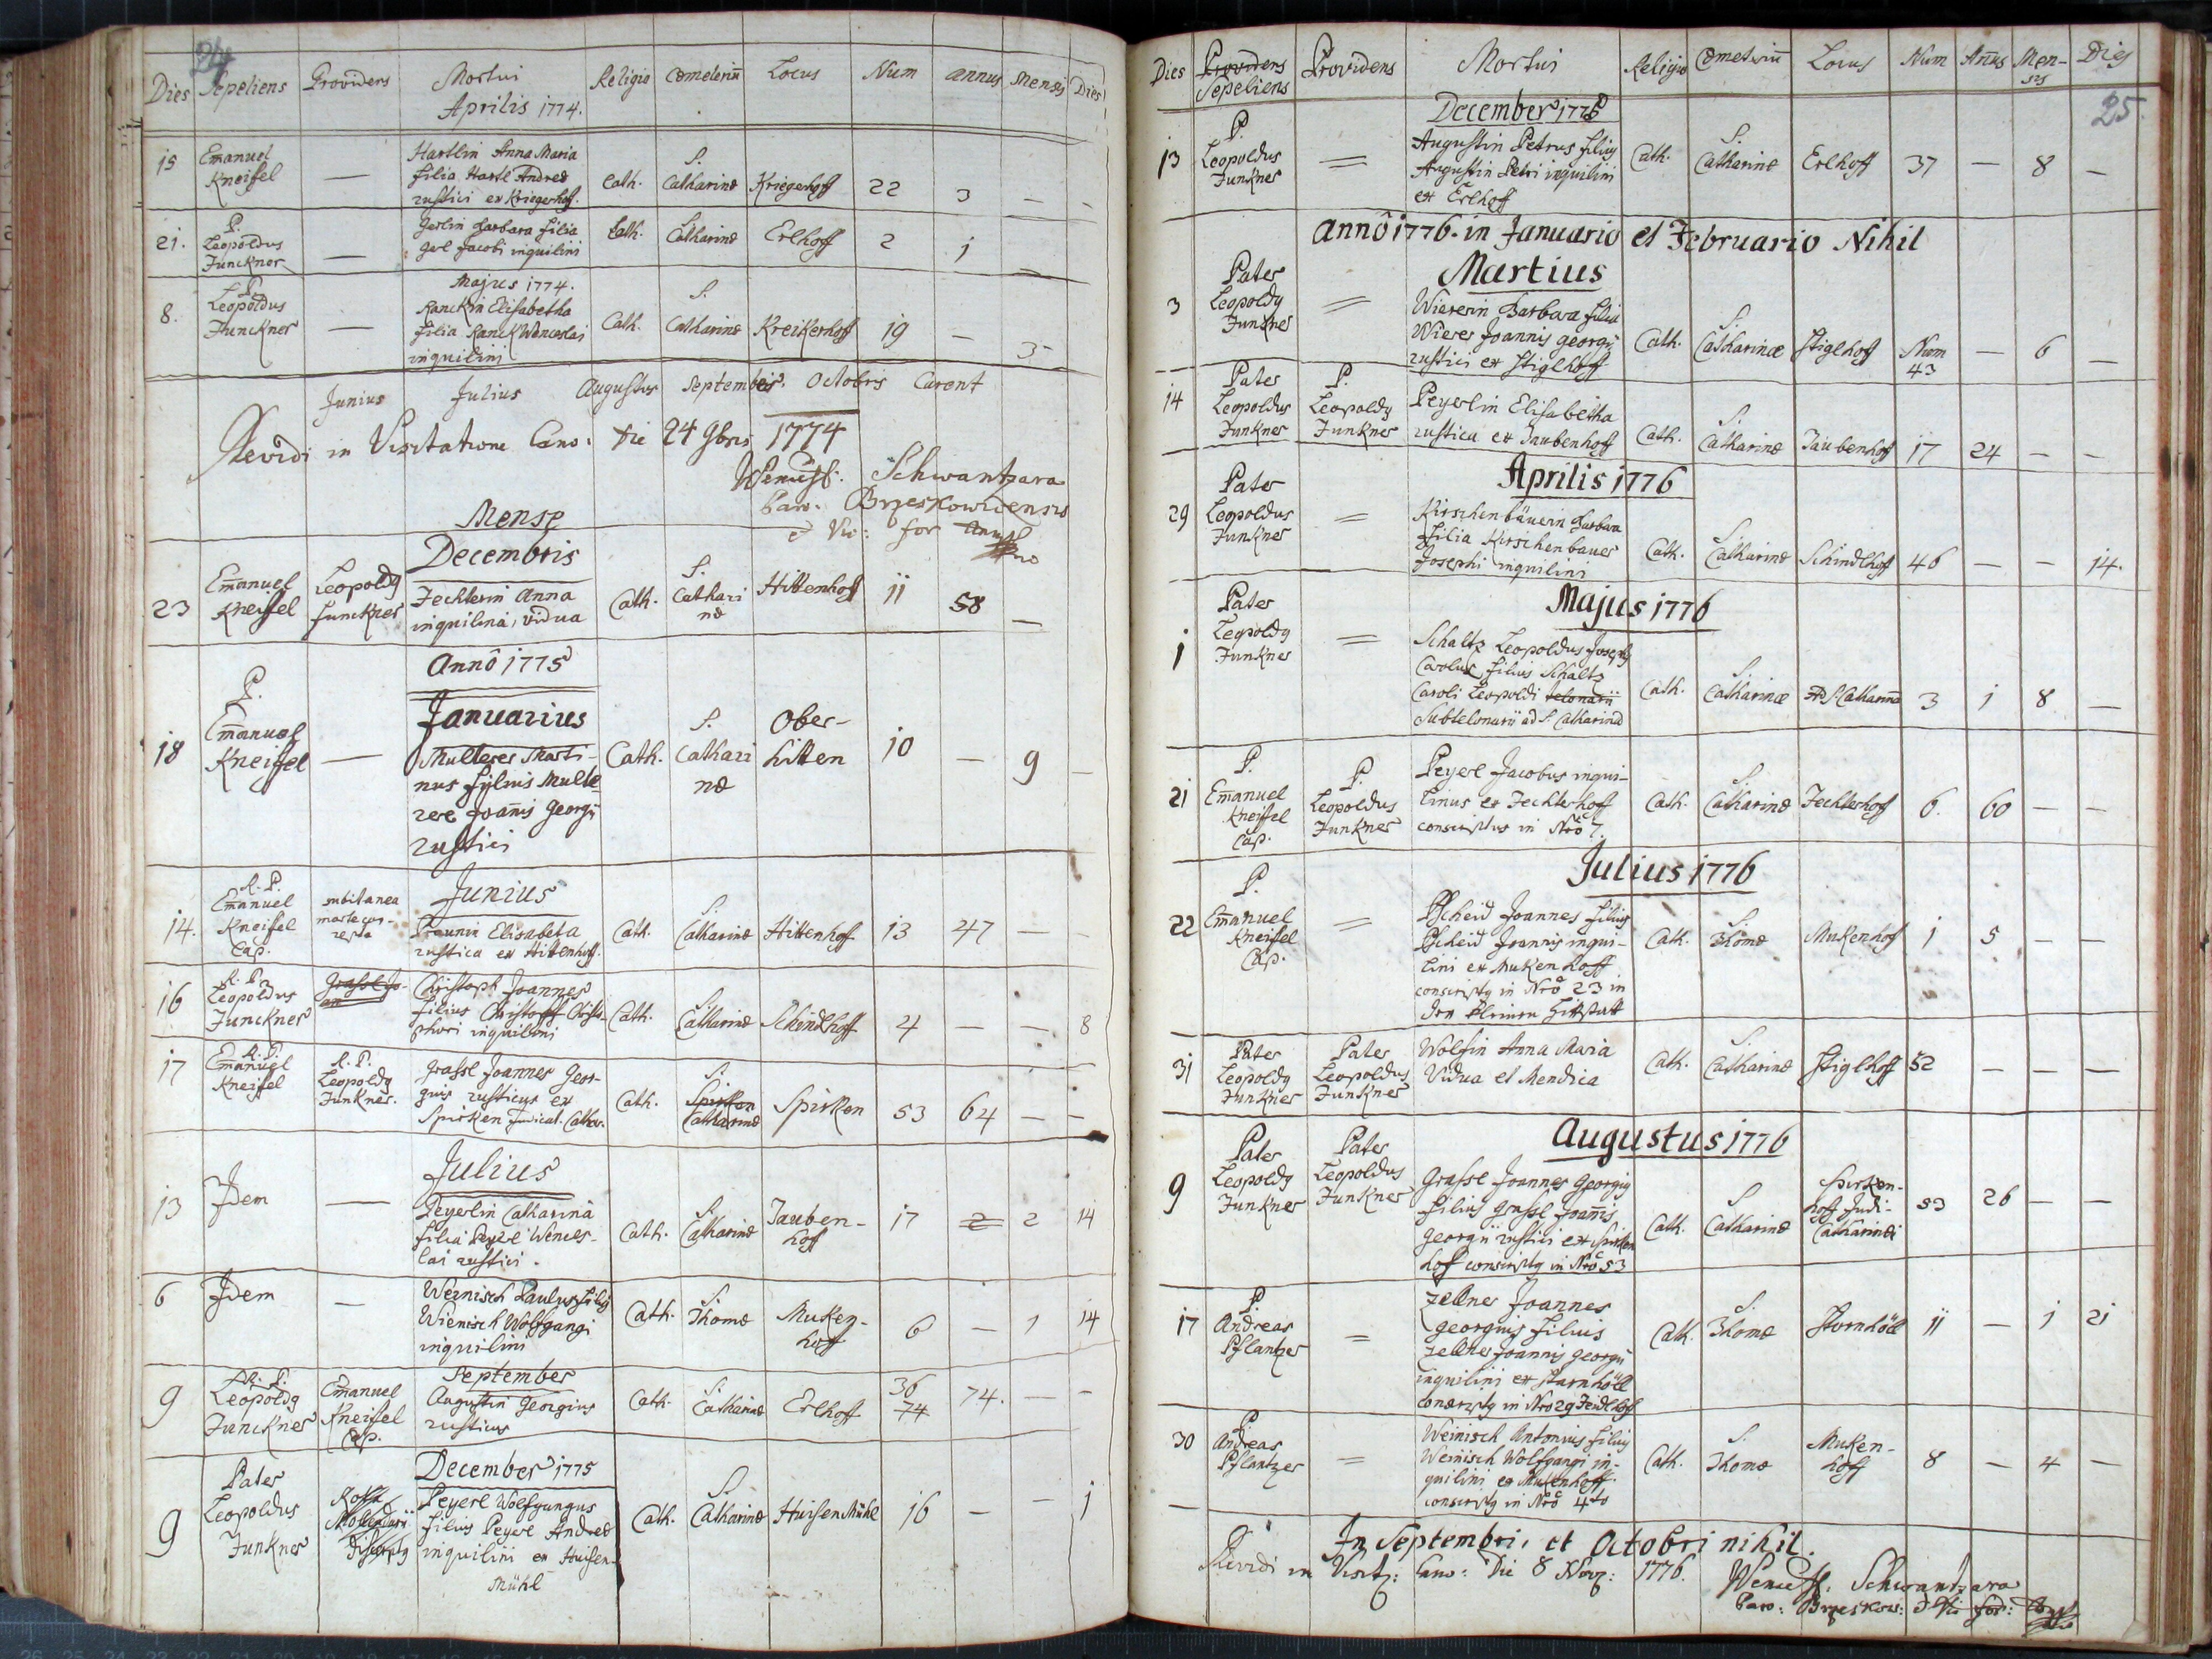 24
Dies Sepeliens Providens Mortui Religio Cometeriū Locus Num annus Mensis Dies
Aprilis 1774.
15 Emanuel Kneifel — Hartlin Anna Maria
filia Hartl Andreæ
rustici ex Kriegerhof. Cath. S. Catharinæ Kriegerhoff 22 3 — -
21. P. Leopoldus Junckner — Gerlin Barbara filia
Gerl Jacobi inquilini Cath. Catharinæ Erlhoff 2 1 —
Majus 1774.
8. P. Leopoldus Junckner — Ranckin Elisabetha
filia Ranck Wenceslai
inquilini Cath. S. Catharinæ Kreikerhoff 19 — 3
Junius Julius Augustus Septembris Octobris Carent
Revidi in Visitatione Cano: die 24 9bris 1774
Wencesl: Schwantzara
Paro: Brzeskowicensis
Vic: for
Mense
Decembris
23 Emanuel Kneissel Leopoldg Junckner Fechterin Anna
inquilina, vidua Cath. S. Cathari
næ Hittenhoff 11 58 —
Annô 1775
Januarius
18 P. Emanuel Kneissel — Multerer Marti-
nus filius Multe
rer Joañis Georgii
rustici Cath. S. Cathari
næ Ober-
hitten 10 — 9 —
Junius
14. R. P. Emanuel Kneifel Cap. subitanea
morte cor-
repta Braunin Elisabeta
rustica ex Hittenhoff. Cath. S. Catharinæ Hittenhoff 13 47 — -
16 R. P. Leopoldus Junckner Christoph Joannes
filius Christoph Christo-
phori inquilini Cath. S. Catharinæ Schindlhoff 4 — 8
17 R. P. Emanuel Kneissel R. P. Leopoldg Junkner. Grassl Joannes Geor-
gius rusticus ex
Spirken Judicat. Cathar. Cath. S. Spirken
Catharinæ Spirken 53 64 — -
Julius
13 Idem — Peyerlin Catharina
filia Peyrl Wences-
lai rustici. Cath. S. Catharinæ Tauben-
hoff 17 2 2 14
6 Idem — Weinisch Paulus filig
Wienisch Wolfgangi
inquilini Cath. S. Thomæ Muken-
hoff 6 — 1 14
September
9 R. P. Leopoldg Junckner Emanuel Kneifel Cap. Augustin Georgius
rusticus Cath. S. Catharinæ Erlhoff 36
74 74. — -
December 1775
9 Pater Leopoldus Junkner Peyerl Wolfgangus
filius Peyerl Andreæ
inquilini ex Huisen-
Mühl Cath. S. Catharinæ Huisen Mühl 16 — — 1
25.
Dies Providens
Sepeliens Providens Mortui Religio Cometeriū Locus Num Añus Men-
sis Dies
December 1775
13 P. Leopoldus Junkner = Augustin Petrus filig
Augustin Petri inquilini
ex Erlhoff Cath. S. Catharinæ Erlhoff 37 — 8 —
Annô 1776. in Januario et Februario Nihil
Martius
3 Pater Leopoldg Junkner = Wiererin Barbara filia
Wierer Joannis georgii
rustici ex Stiglhoff Cath. S. Catharinæ Stiglhoff Num
43 — 6 —
14 Pater Leopoldus Junkner P. Leopoldg Junkner Peyerlin Elisabetha
rustica ex Taubenhoff Cath. S. Catharinæ Taubenhoff 17 24 — -
Aprilis 1776
29 Pater Leopoldus Junkner = Kirschenbäuerin Barbara
filia Kirschenbauer
Josephi inquilini Cath. S. Catharinæ Schindlhoff 46 — — 14.
Majus 1776
1 Pater Leopoldg Junkner = Schaltz Leopoldus Josephg
Carolus filius Schaltz
Caroli Leopoldi telonarii
Subtelonarii ad S. Catharinā Cath. S. Catharinæ ad S. Catharinā 3 1 8 —
21 P. Emanuel Kneissel Cap. P. Leopoldus Junkner Peyerl Jacobus inqui-
linus ex Fechterhoff
conscriptus in Nrô 7. Cath. S. Catharinæ Fechterhoff 6. 60 — —
Julius 1776
22 P. Emanuel Kneissel Cap. = Pscheid Joannes filig
Pscheid Joannis inqui-
lini ex Mukenhoff
conscriptg in Nrô 23 in
Cath. S. Thomæ Mukenhof 1 5 — —
31 Pater Leopoldg Junkner Pater Leopoldus Junkner Wolfin Anna Maria
Vidua et Mendica Cath. S. Catharinæ Stiglhoff 52 — — —
Augustus 1776
9 Pater Leopoldg Junkner Pater Leopoldus Junkner Grassl Joannes Georgig
filius Grassl Joañis
Georgii rustici ex Spirken
hoff conscriptg in Nrô 53 Cath. S. Catharinæ Spirken-
hoff Judi-
Catharinæ 53 26 — —
17 P. Andreas Pflantzer = Zellner Joannes
georgius filius
Zellner Joannis georgii
inquilini ex Stornhöll
conscriptg in Nro 29 Feidlhoff Cath. S. Thomæ Stornhöll 11 — 1 21
30 P. Andreas Pflantzer = Weinisch Antonius filig
Weinisch Wolfgangi in-
quilini ex Mukenhoff
conscriptg in Nrô 4to Cath. S. Thomæ Muken-
hoff 8 — 4 —
In Septembri, et Octobri nihil.
Revidi in Visit: Cano: Die 8 Nov: 1776. Wencesl: Schwantzara
Paro: Brzeskow: Vic for: